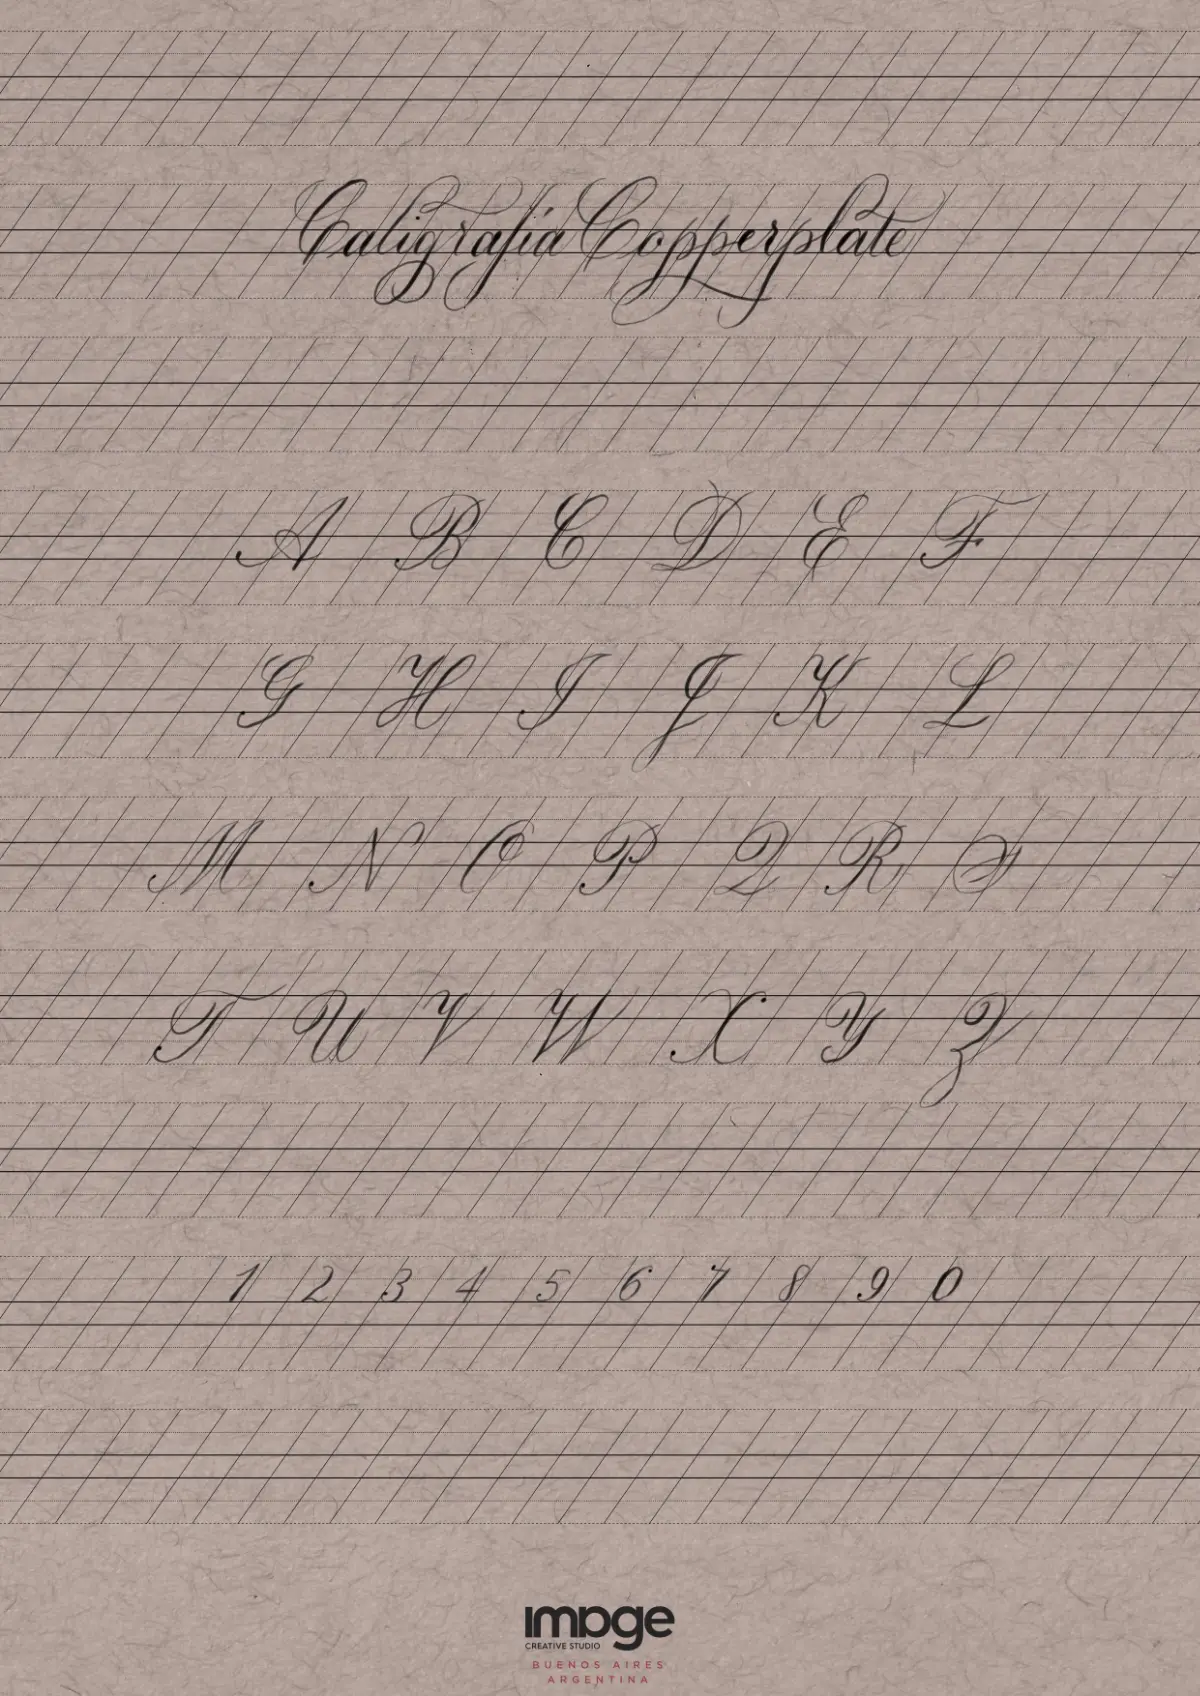 Caligrafía Copperplate
A B C D E F
G H I J K L
M N O P Q R S
T U V W X Y Z
1 2 3 4 5 6 7 8 9 0
image
CREATIVE STUDIO
BUENOS AIRES
ARGENTINA